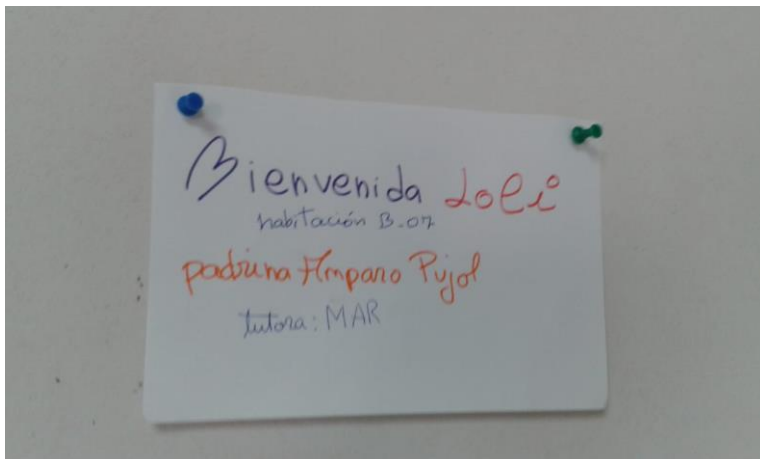 Bienvenida Loli
habitación B-07
padrina Amparo Pujol
tutora: MAR